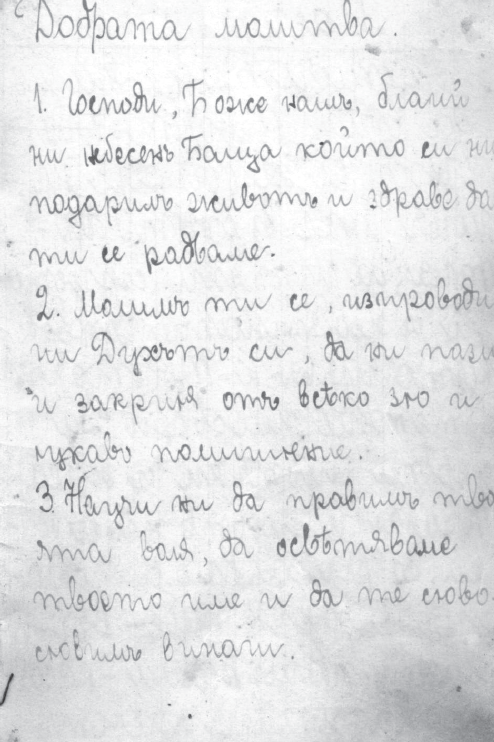 Добрата молитва.
1. Господи, Боже нашъ, благий
ни небесенъ Баща който си ни
подарилъ животъ и здраве да
ти се радваме.
2. Молимъ ти се, изпроводи
ни Духътъ си, да ни пази
и закриля отъ всѣко зло и
лукаво помишление.
3. Научи ни да правимъ тво
ята воля, да освѣтяваме
твоето име и да те слово-
словимъ винаги.